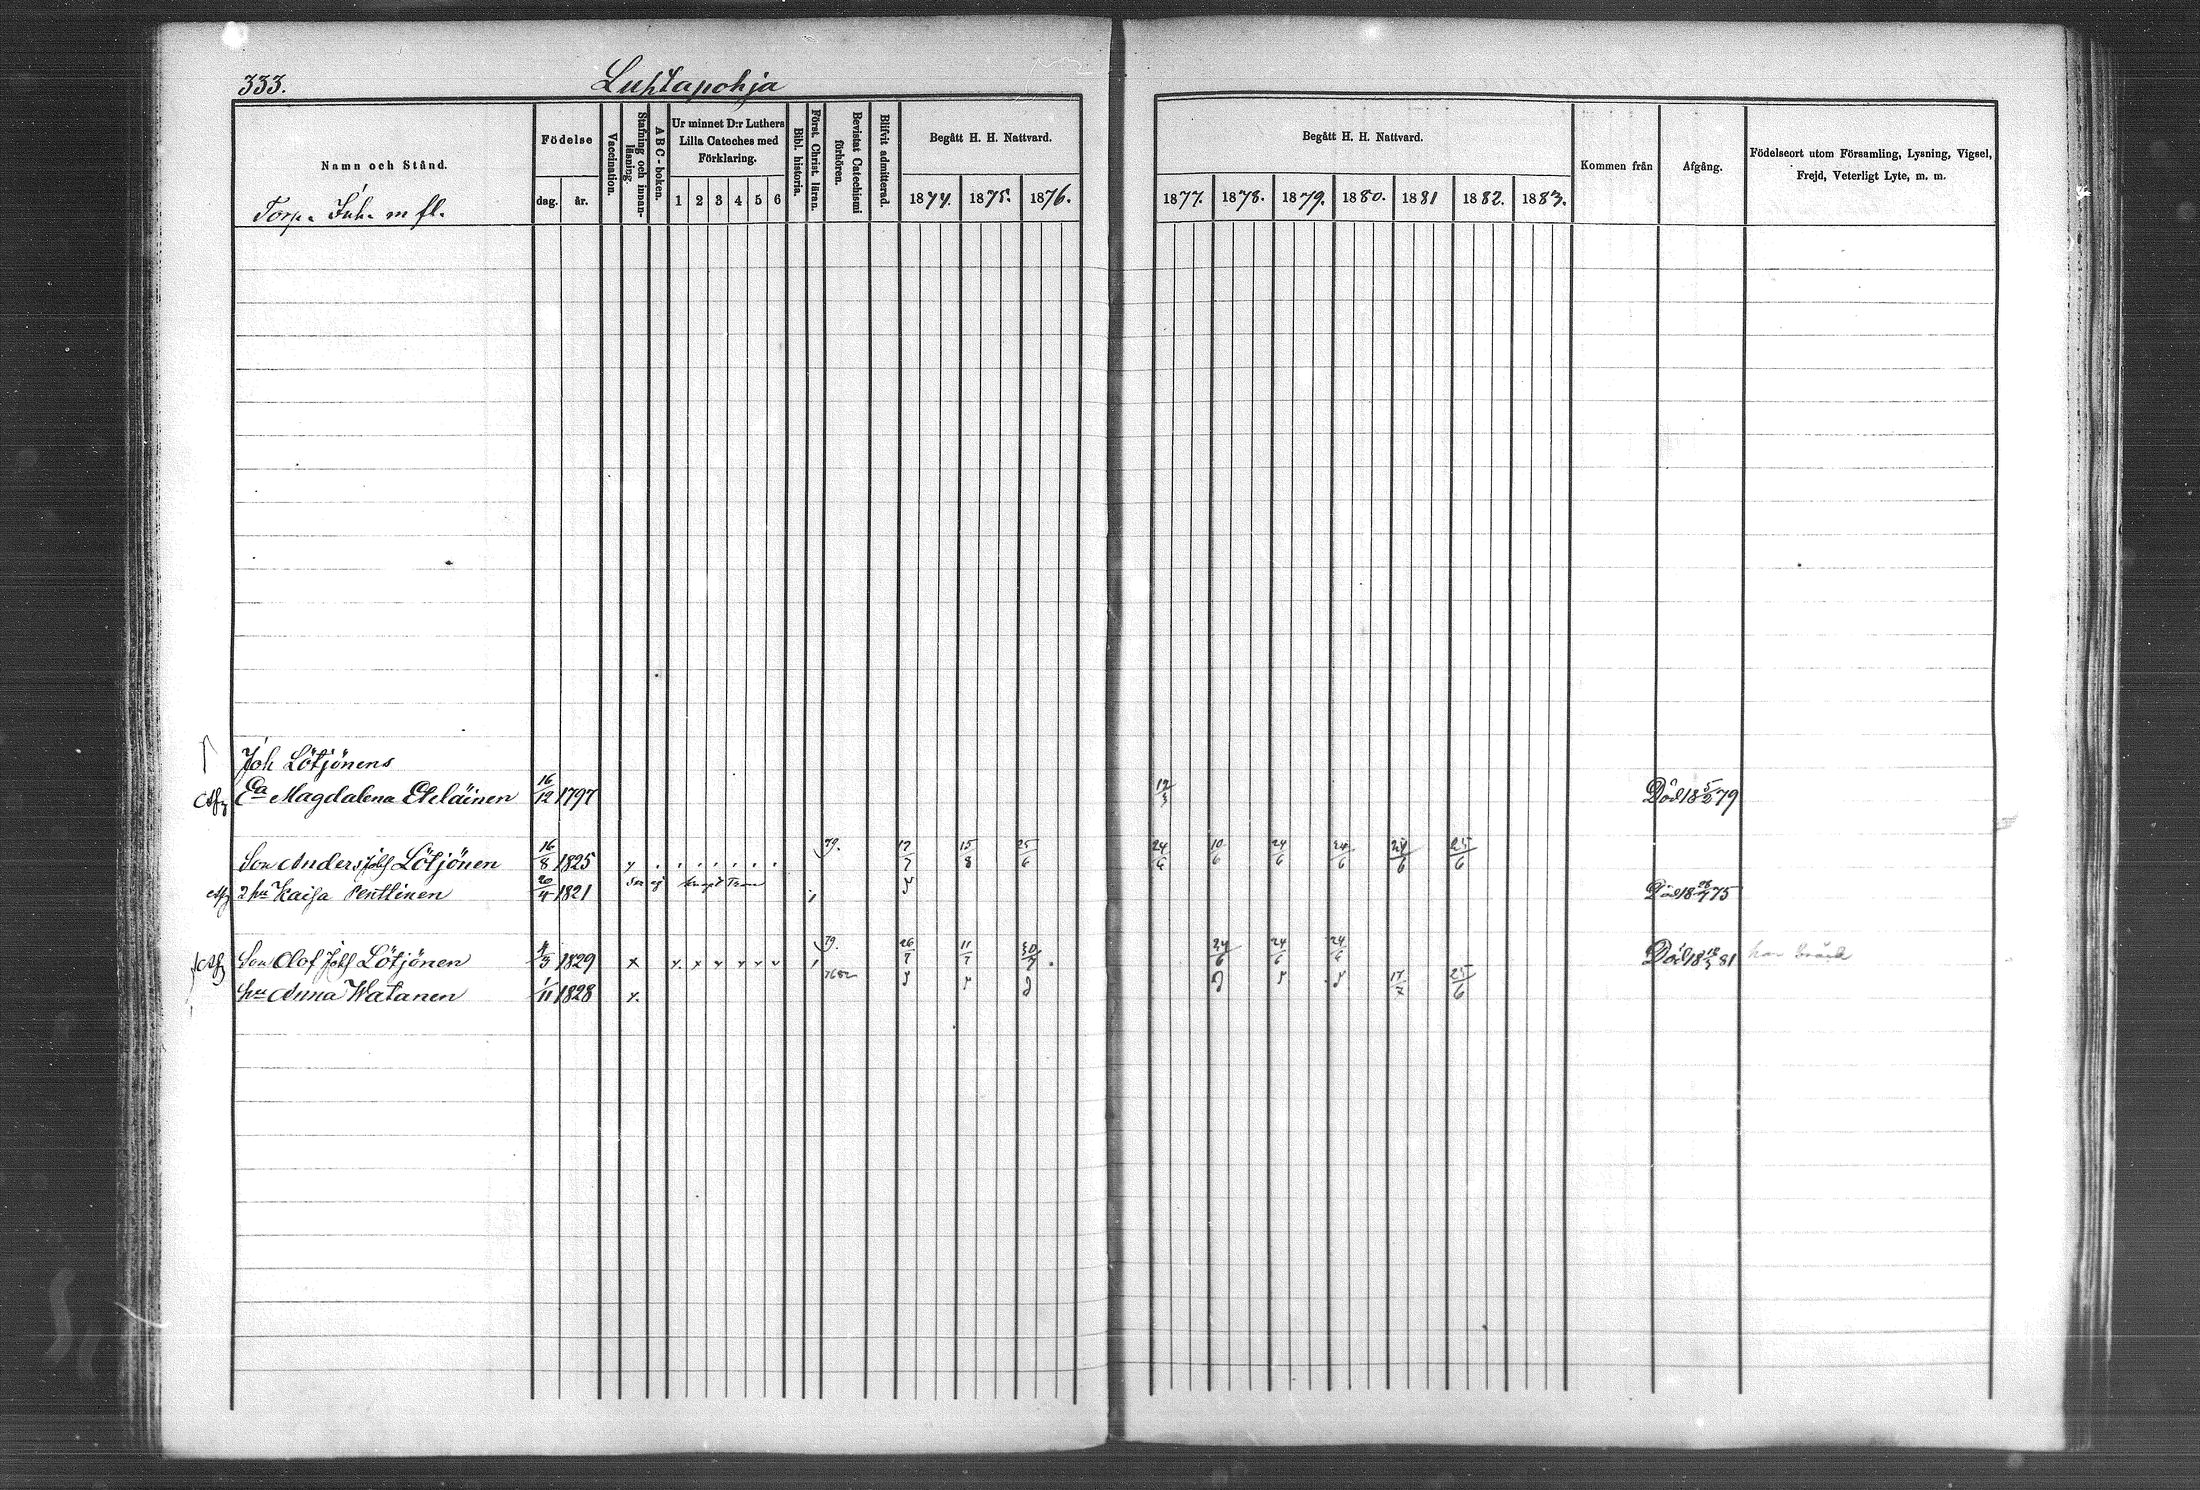 333. Luhtapohja
Namn och Stånd.
Torp. Inh. m fl.
Födelse
dag. år.
Vaccination.
Stafning och innanläsning.
ABC-boken.
Ur minnet D:r Luthers Lilla Cateches med Förklaring.
1 2 3 4 5 6
Bibl. historia.
Först. Christ. läran.
Bevistat Catechismi förhören.
Blifvit admitterad.
Begått H. H. Nattvard.
1874. 1875. 1876.
Begått H. H. Nattvard.
1877. 1878. 1879. 1880. 1881 1882. 1883.
Kommen från
Afgång.
Födelseort utom Församling, Lysning, Vigsel, Frejd, Veterligt Lyte, m. m.
Joh Lötjönens
Ea Magdalena 16/12 1797 19/3 Död 18 5/2 79
Son Anders Joh Lötjönen 16/8 1825 79. 17/7 15/8 25/6 24/6 10/6 24/6 24/6 24/6 25/6
2 hu Kaisa Penttinen 20/4 1821 Död 18 75
Son Olof Joh Lötjönen 4/3 1829 x x x 79. 26/7 11/7 30/7 24/6 24/6 24/6 Död 18 81
hu Anna Watanen 1/11 1828 x 17/7 25/6